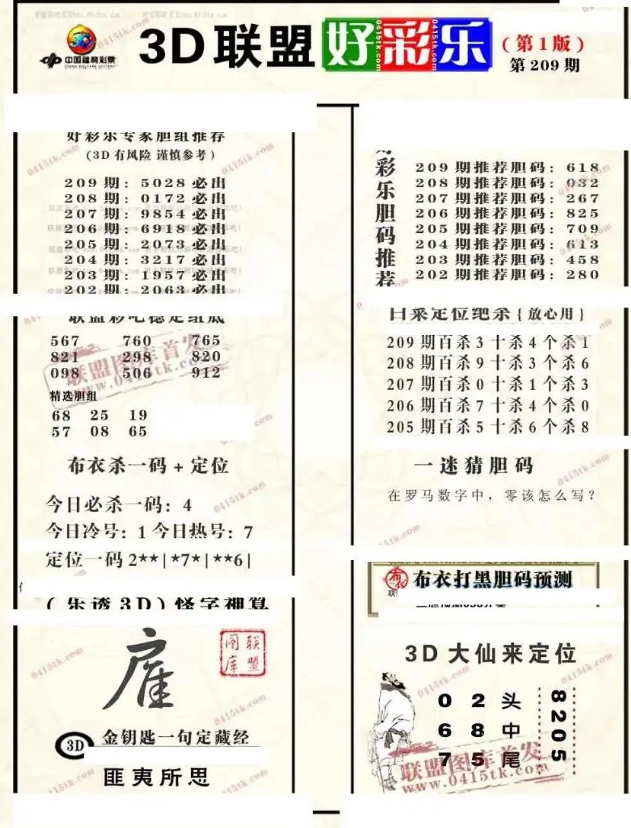 3D联盟好彩乐
(第1版)
第209期
中国福利彩票
好彩乐专家胆组推荐
(3D有风险 谨慎参考)
209期: 5028必出
208期: 0172必出
207期: 9854必出
206期: 6918必出
205期: 2073必出
204期: 3217必出
203期: 1957必出
202期: 2063必出
联盟彩吧稳定组底
567 760 765
821 298 820
098 506 912
精选胆组
68 25 19
57 08 65
布衣杀一码+定位
今日必杀一码: 4
今日冷号: 1 今日热号: 7
定位一码 2**|*7*|**6|
(乐透3D)怪字神算
联盟图库
3D
金钥匙一句定藏经
匪夷所思
好彩乐胆码推荐
209期推荐胆码: 618
208期推荐胆码: 032
207期推荐胆码: 267
206期推荐胆码: 825
205期推荐胆码: 709
204期推荐胆码: 613
203期推荐胆码: 458
202期推荐胆码: 280
白菜定位绝杀{放心用}
209期百杀3十杀4个杀1
208期百杀9十杀3个杀6
207期百杀0十杀1个杀3
206期百杀7十杀4个杀0
205期百杀5十杀6个杀8
一迷猜胆码
在罗马数字中，零该怎么写?
布衣打黑胆码预测
3D大仙来定位
0 2 头
6 8 中
7 5 尾
8205
联盟图库首发
www.0415tk.com